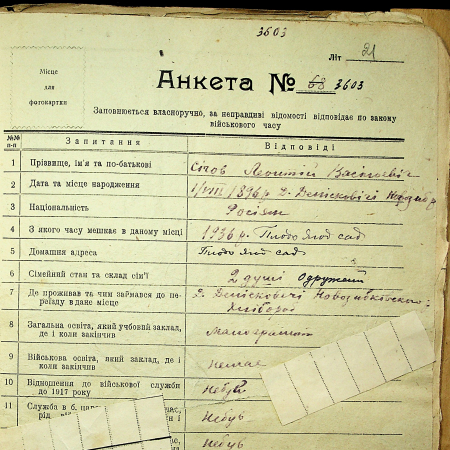 3603
Літ 21
Місце
для
фотокартки
Анкета № 68 3603
Заповнюється власноручно, за неправдиві відомості відповідає по закону
військового часу
№№
п-п
Запитання
Відповіді
1 Прізвище, ім'я та по-батькові
Сігов Леонтій Васільевіч
2 Дата та місце народження
1/VIII 1896 р. Д. Денісковічі
3 Національність
Росіян
4 З якого часу мешкає в даному місці
1936 р. Плодо Ягод сад
5 Домашня адреса
Плодо Ягод сад
6 Сімейний стан та склад сім'ї
2 душі Одружен
7 Де проживав та чим займався до пе-
реїзду в дане місце
Д. Денісковичі Новозибківского
8 Загальна освіта, який учбовий заклад,
де і коли закінчив
Малограмот
9 Військова освіта, який заклад, де і
коли закінчив
немає
10 Відношення до військової служби
до 1917 року
Небув
11 Служба в б. царс
час,
рід
н і
Небув
час,
Небув